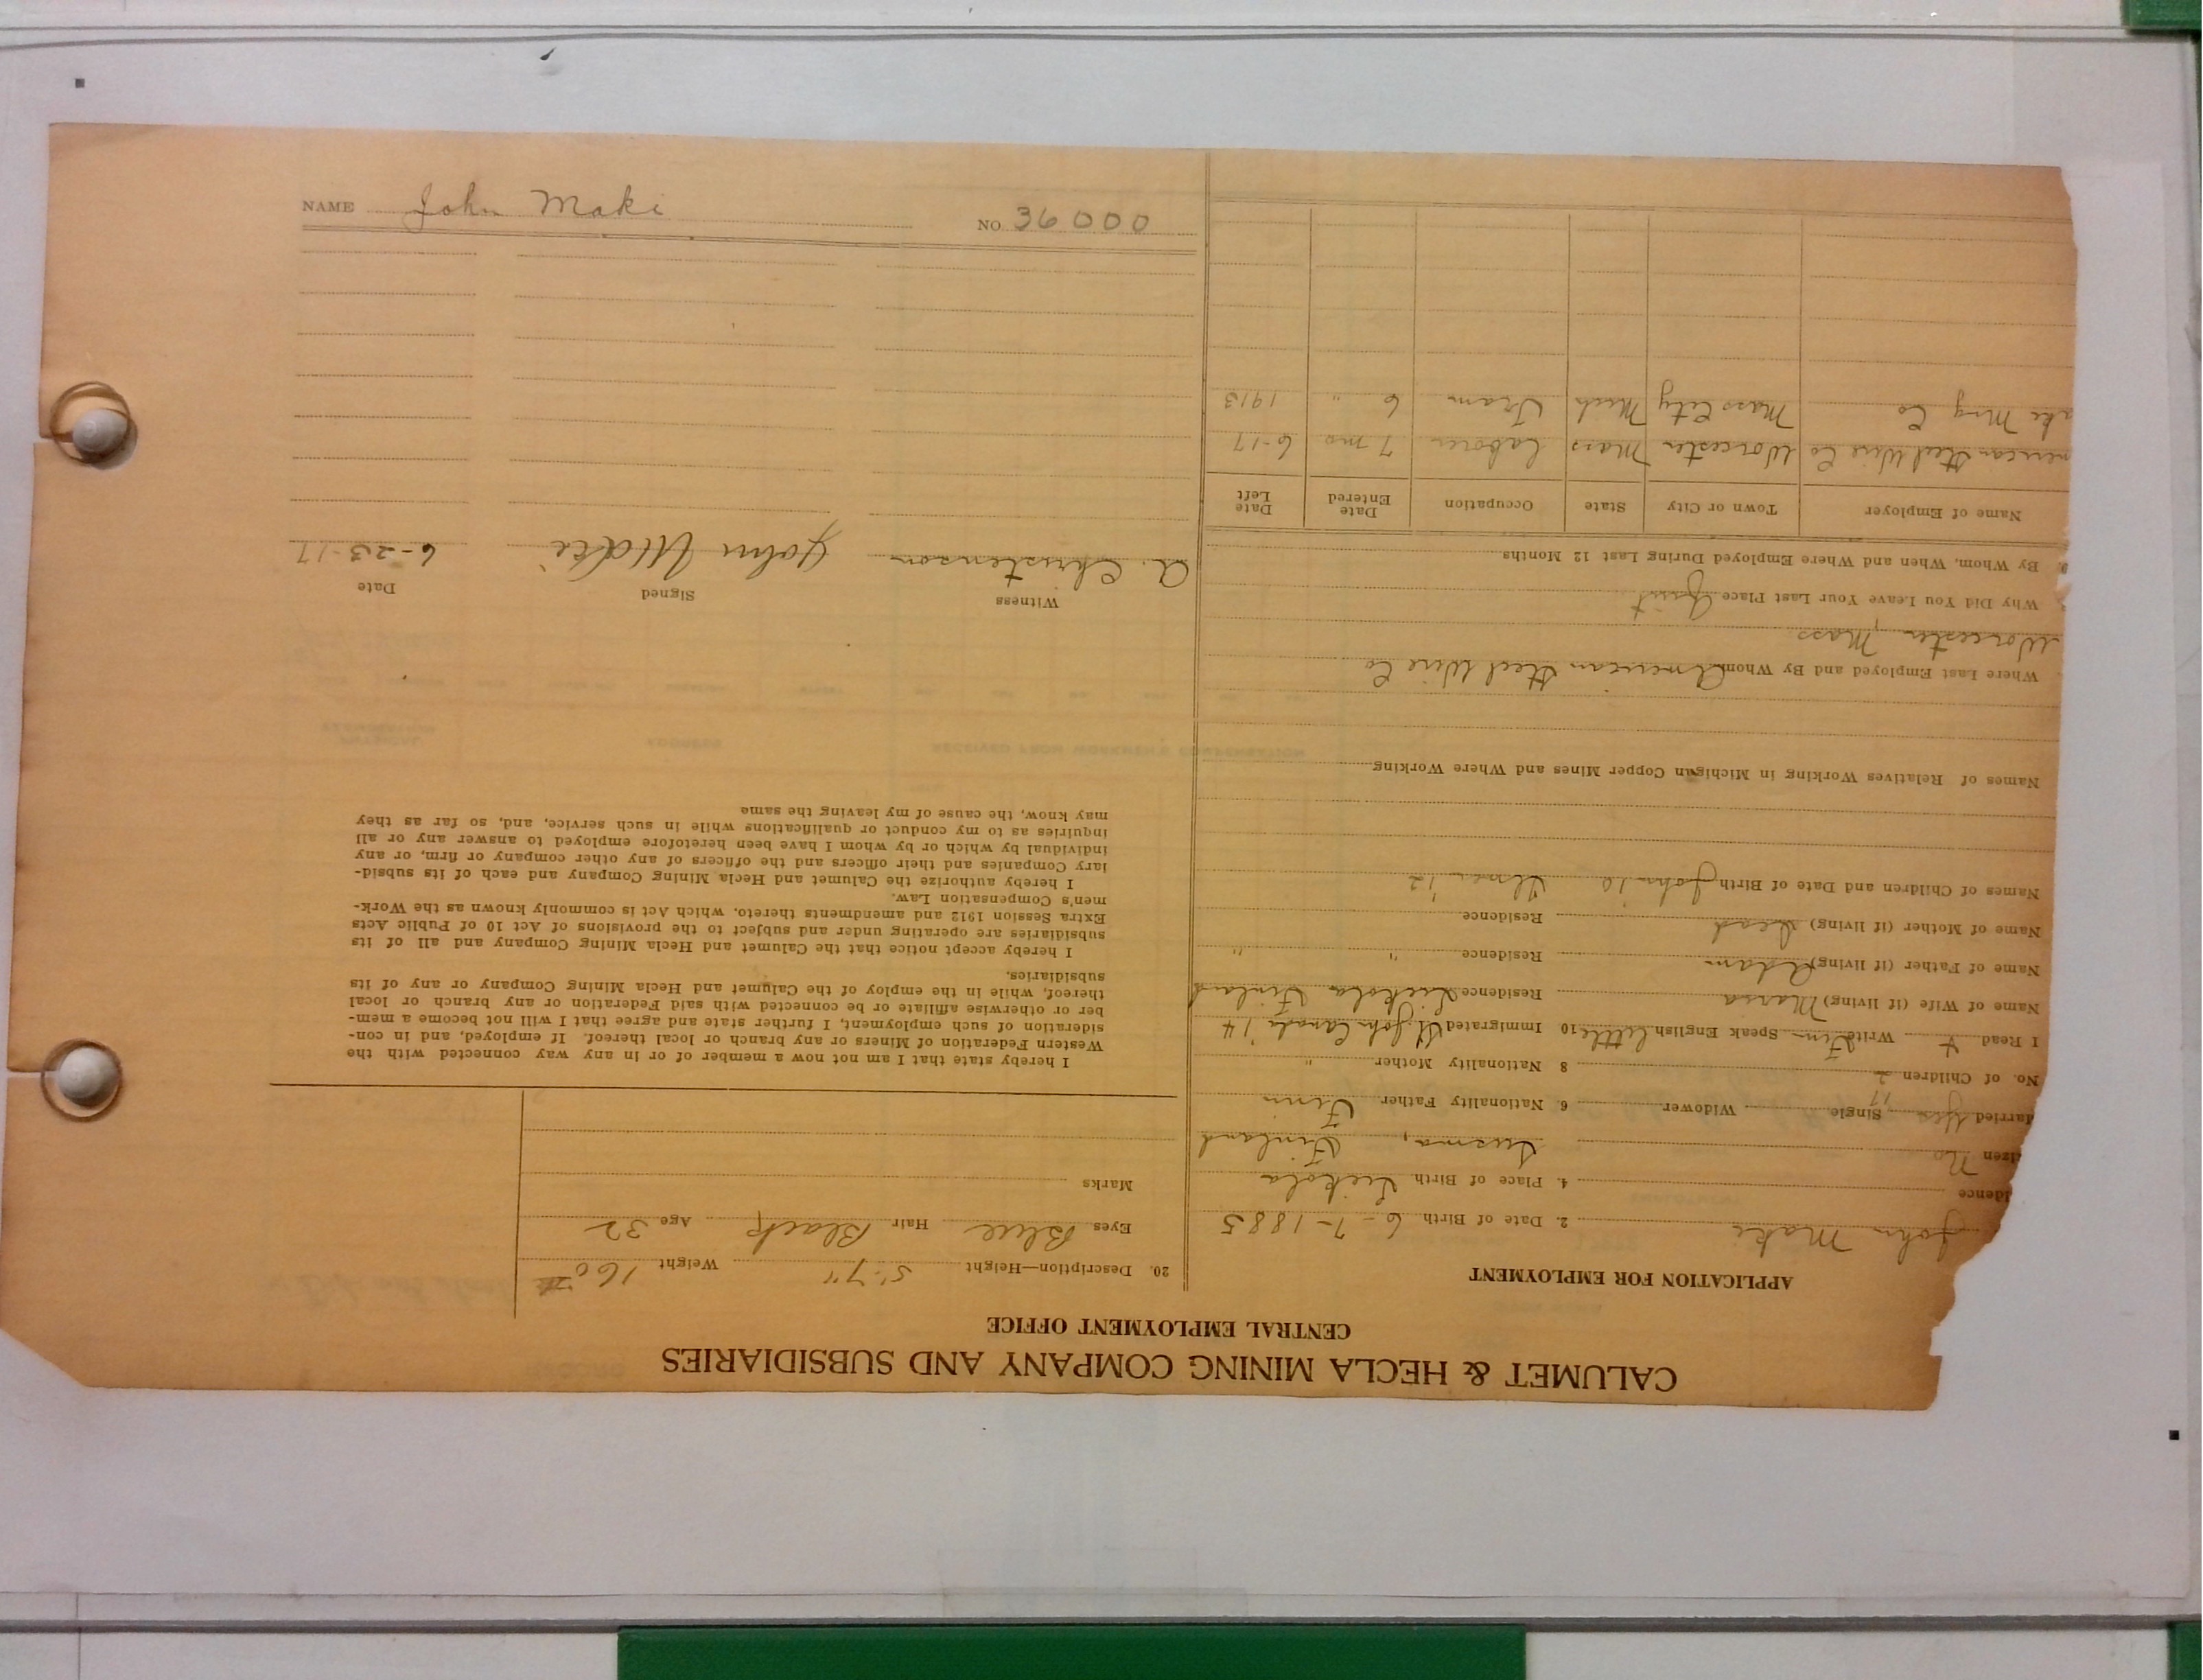 CALUMET & HECLA MINING COMPANY AND SUBSIDIARIES
CENTRAL EMPLOYMENT OFFICE
APPLICATION FOR EMPLOYMENT
John Maki 2. Date of Birth 6-7-1885
idence 4. Place of Birth
izen No Finland
arried Yes Single Widower 6. Nationality Father Finn
No. of Children 2 8 Nationality Mother "
I Read + Write Finn Speak English little 10 Immigrated St. John Canada '14
Name of Wife (if living) Residence Finland
Name of Father (if living) Adam Residence " "
Name of Mother (if living) Dead Residence
Names of Children and Date of Birth John 10 12
Names of Relatives Working in Michigan Copper Mines and Where Working
Where Last Employed and By Whom American Steel Wire Co
Worcester, Mass
Why Did You Leave Your Last Place Quit
9. By Whom, When and Where Employed During Last 12 Months
Name of Employer Town or City State Occupation Date Entered Date Left
merican Steel Wire Co Worcester Mass Laborer 7 mo 6-17
ake Mng Co Mass City Mich Tram 6 " 1913
20. Description—Height 5'-7" Weight 160
Eyes Blue Hair Black Age 32
Marks
I hereby state that I am not now a member of or in any way connected with the
Western Federation of Miners or any branch or local thereof. If employed, and in con-
sideration of such employment, I further state and agree that I will not become a mem-
ber or otherwise affiliate or be connected with said Federation or any branch or local
thereof, while in the employ of the Calumet and Hecla Mining Company or any of its
subsidiaries.
I hereby accept notice that the Calumet and Hecla Mining Company and all of its
subsidiaries are operating under and subject to the provisions of Act 10 of Public Acts
Extra Session 1912 and amendments thereto, which Act is commonly known as the Work-
men's Compensation Law.
I hereby authorize the Calumet and Hecla Mining Company and each of its subsid-
iary Companies and their officers and the officers of any other company or firm, or any
individual by which or by whom I have been heretofore employed to answer any or all
inquiries as to my conduct or qualifications while in such service, and, so far as they
may know, the cause of my leaving the same
Witness Signed Date
A. Christenson John Maki 6-23-17
NAME John Maki NO. 36000